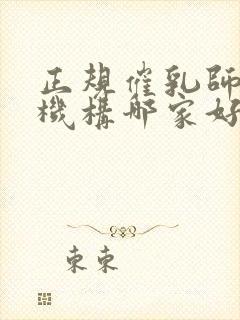 正規催乳師
機構哪家好
束束